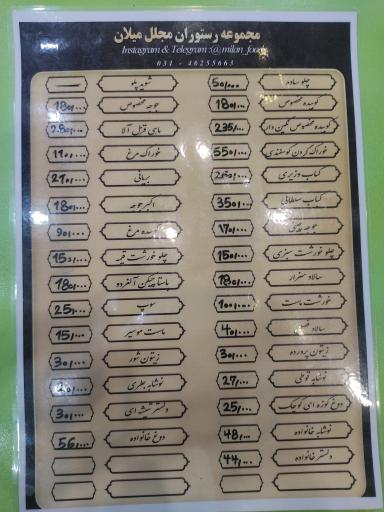 مجموعه رستوران مجلل میلان
Instagram & Telegram :@milan_food
031 - 46255663
چلو ساده 50/000
کوبیده مخصوص 180/000
کوبیده مخصوص نگین دار 235/000
خوراک گردن گوسفندی 550/000
کباب وزیری
کباب سلطانی 350/000
جوجه 170/000
چلو خورشت سبزی 150/000
سالاد سزار 180/000
خورشت ماست 100/000
سالاد 40/000
زیتون پرورده 30/000
نوشابه قوطی 27/000
دوغ کوزه ای کوچک 25/000
نوشابه خانواده 48/000
دلستر خانواده 44/000
شوید پلو
جوجه مخصوص 180/000
ماهی قزل آلا 280/000
خوراک مرغ 110/000
بریانی 210/000
اکبر جوجه 180/000
مرغ 90/000
چلو خورشت قیمه 150/000
پاستا چیکن آلفردو 180/000
سوپ 25/000
ماست موسیر 15/000
زیتون شور 30/000
نوشابه بطری 20/000
دلستر شیشه ای 30/000
دوغ خانواده 56/000